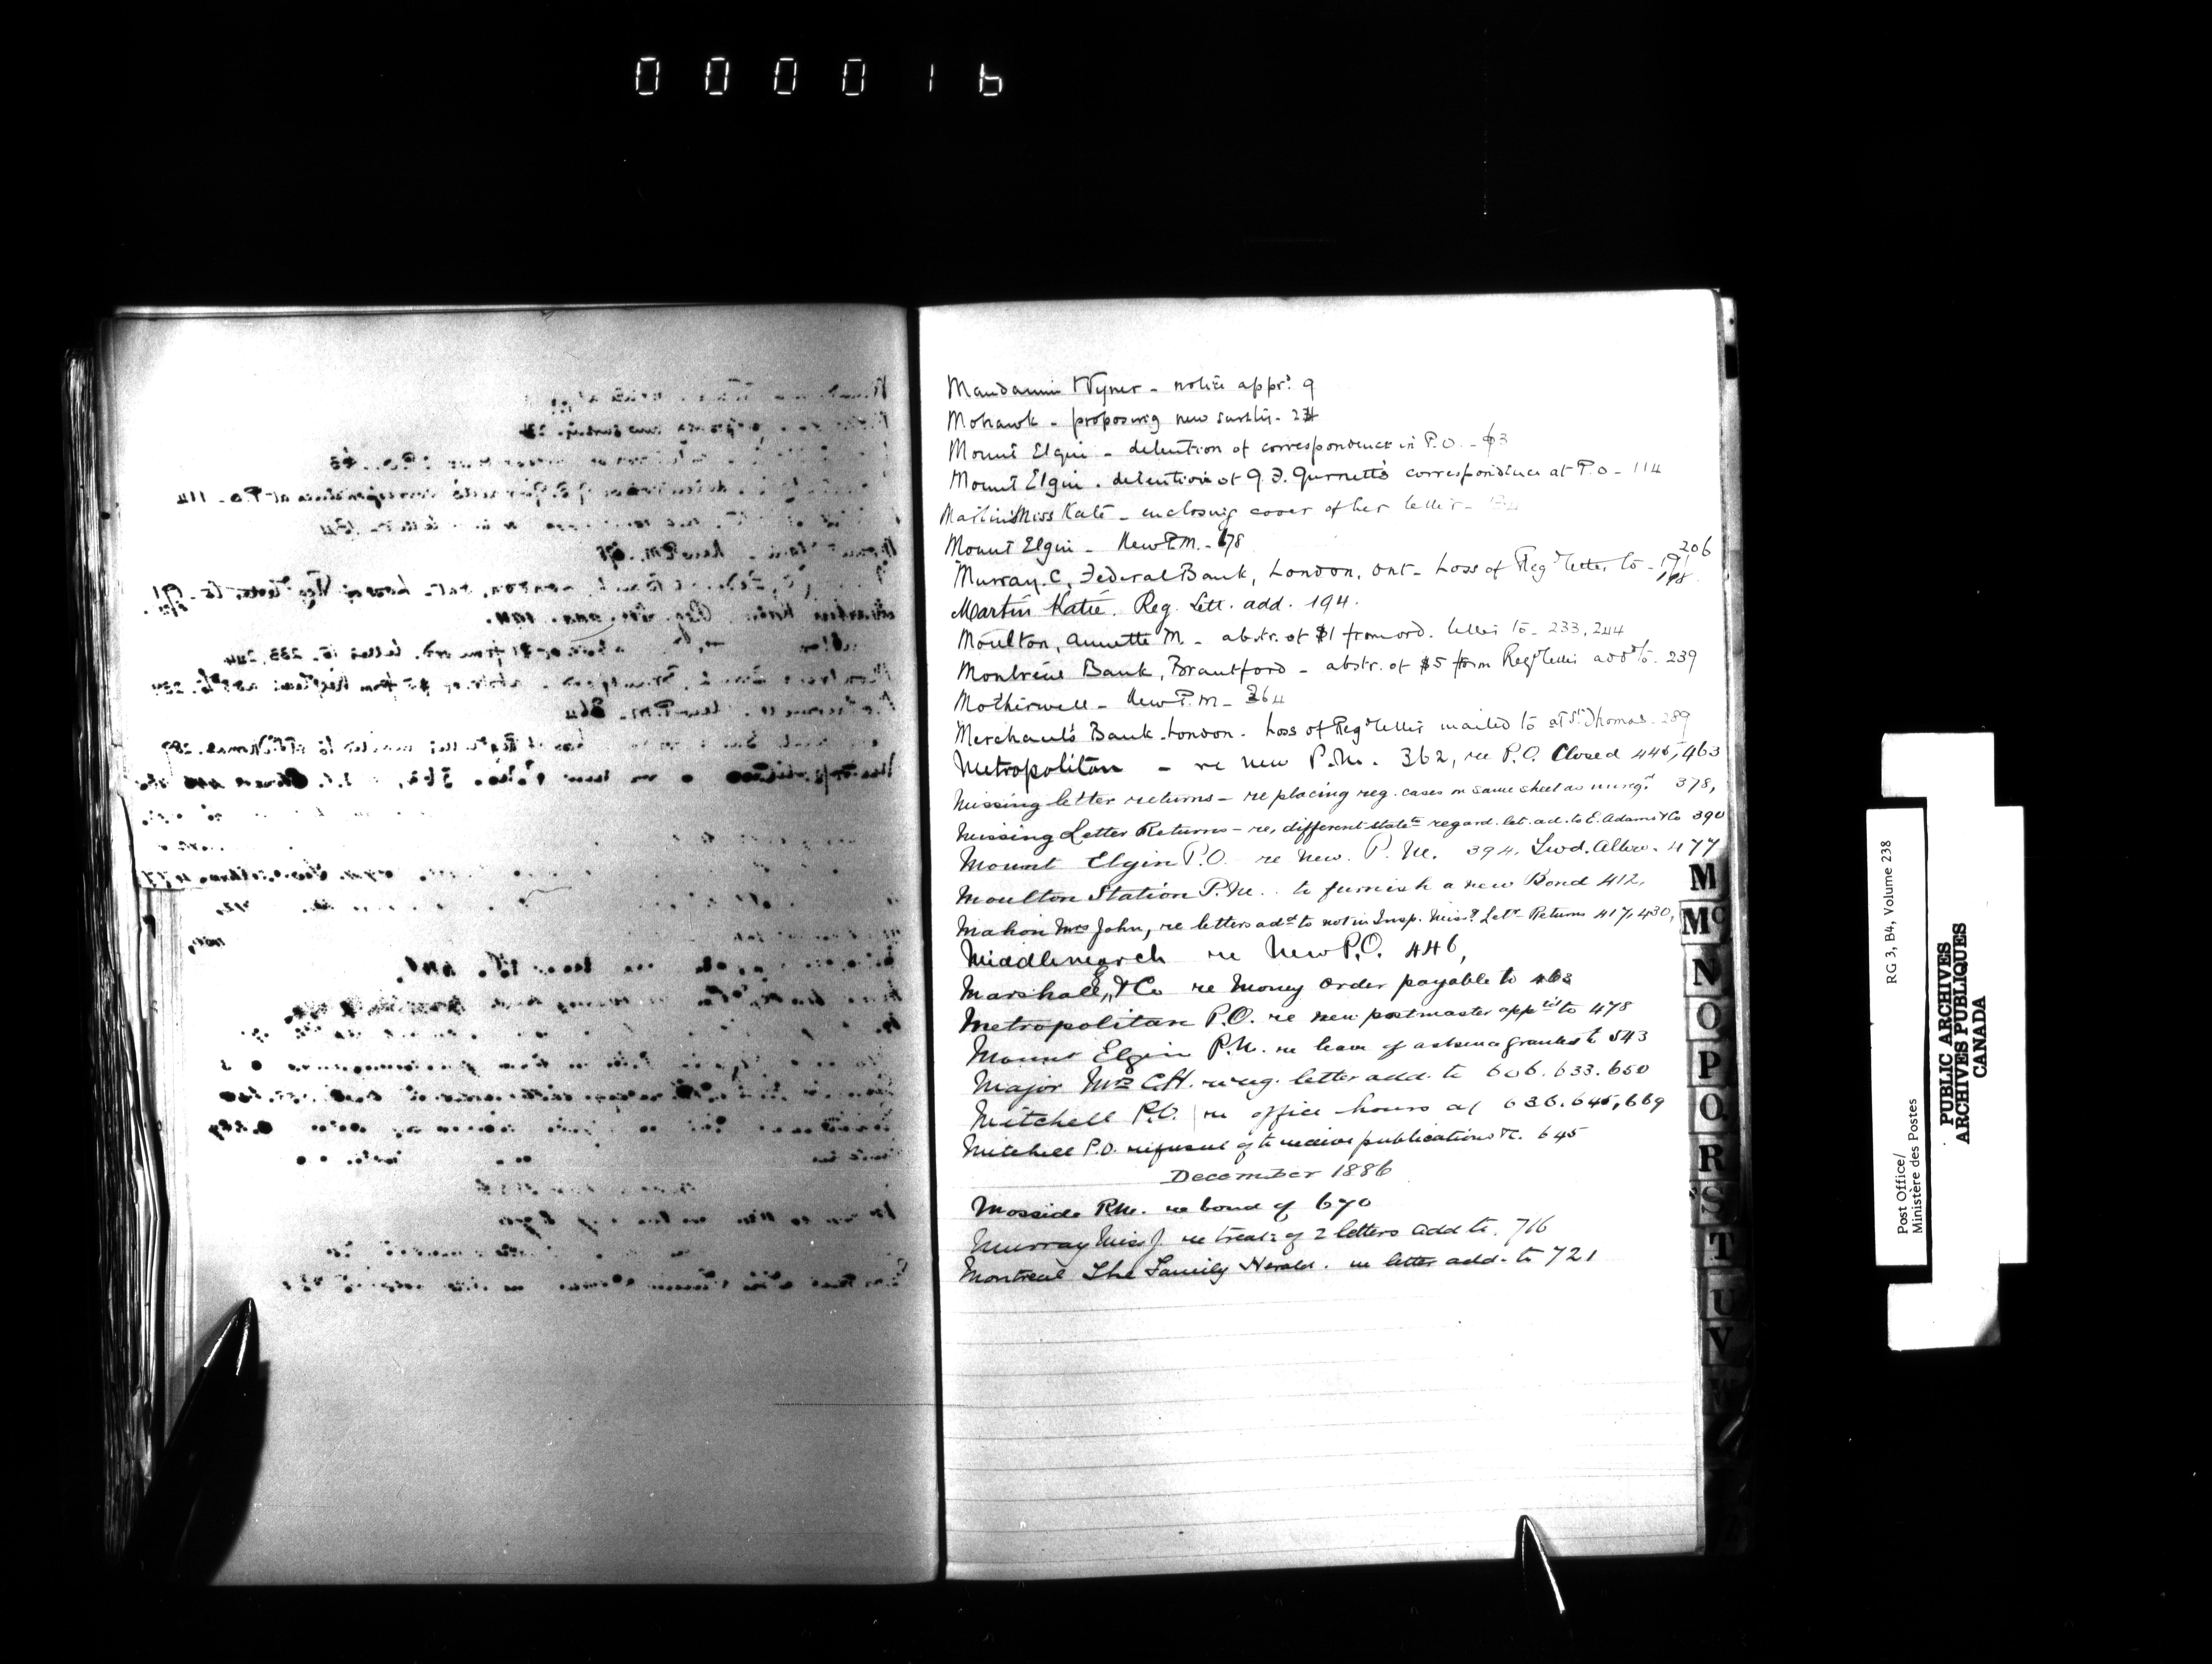 000016
Mandamin Wyner - notice appt. 9
Mohawk - proposing new sureties - 24
Mount Elgin - detention of correspondence in P.O. - 63
Mount Elgin. detention of J. Gurnett's correspondence at P.O - 114
Martin Miss Kate - enclosing cover of her letter -
Mount Elgin - New P.M. - 178
206
Murray. C, Federal Bank, London, Ont - Loss of Reg'd letter to - 191
198
Martin Katie. Reg. Lett. add. 194.
Moulton, Annette M. - abstr. of $1 from ord. letter to - 233, 244
Montreal Bank, Brantford - abstr. of $5 from Reg'd letter add'd to. 239
Motherwell - New P.M - 264
Merchant's Bank - London - Loss of Reg'd letter mailed to at St. Thomas. 289
Metropolitan - re new P.M. 362, re P.O. Closed 445, 463
Missing letter returns - re placing reg. cases on same sheet as unreg'd 378,
Missing Letter Returns - re, different statets regard. let. ad. to E. Adams & Co 390
Mount Elgin P.O. re New. P.M. 394. Fwd. Allow. 477
Moulton Station P.M. to furnish a new Bond 412,
Mahon Mrs John, re letters ad'd to not in Insp. Miss'g Let'r Returns 417, 430,
Middlemarch re New P.O. 446,
Marshall, & Co re Money Order payable to 463
Metropolitan P.O. re new postmaster app'ted to 478
Mount Elgin P.M. re leave of absence granted to 543
Major Mrs C.H. re reg. letter add. to 606. 633. 650
Mitchell P.O. re office hours at 636. 645, 669
Mitchell P.O. refusal of to receive publications &c. 645
December 1886
Mosside P.M. re bond of 670
Murray Miss J. re treat: of 2 letters add to. 716
Montreal The Family Herald. re letter add. to 721
M
Mc
N
O
P
Q
R
S
T
U
V
W
Post Office/
Ministère des Postes
RG 3, B4, Volume 238
PUBLIC ARCHIVES
ARCHIVES PUBLIQUES
CANADA